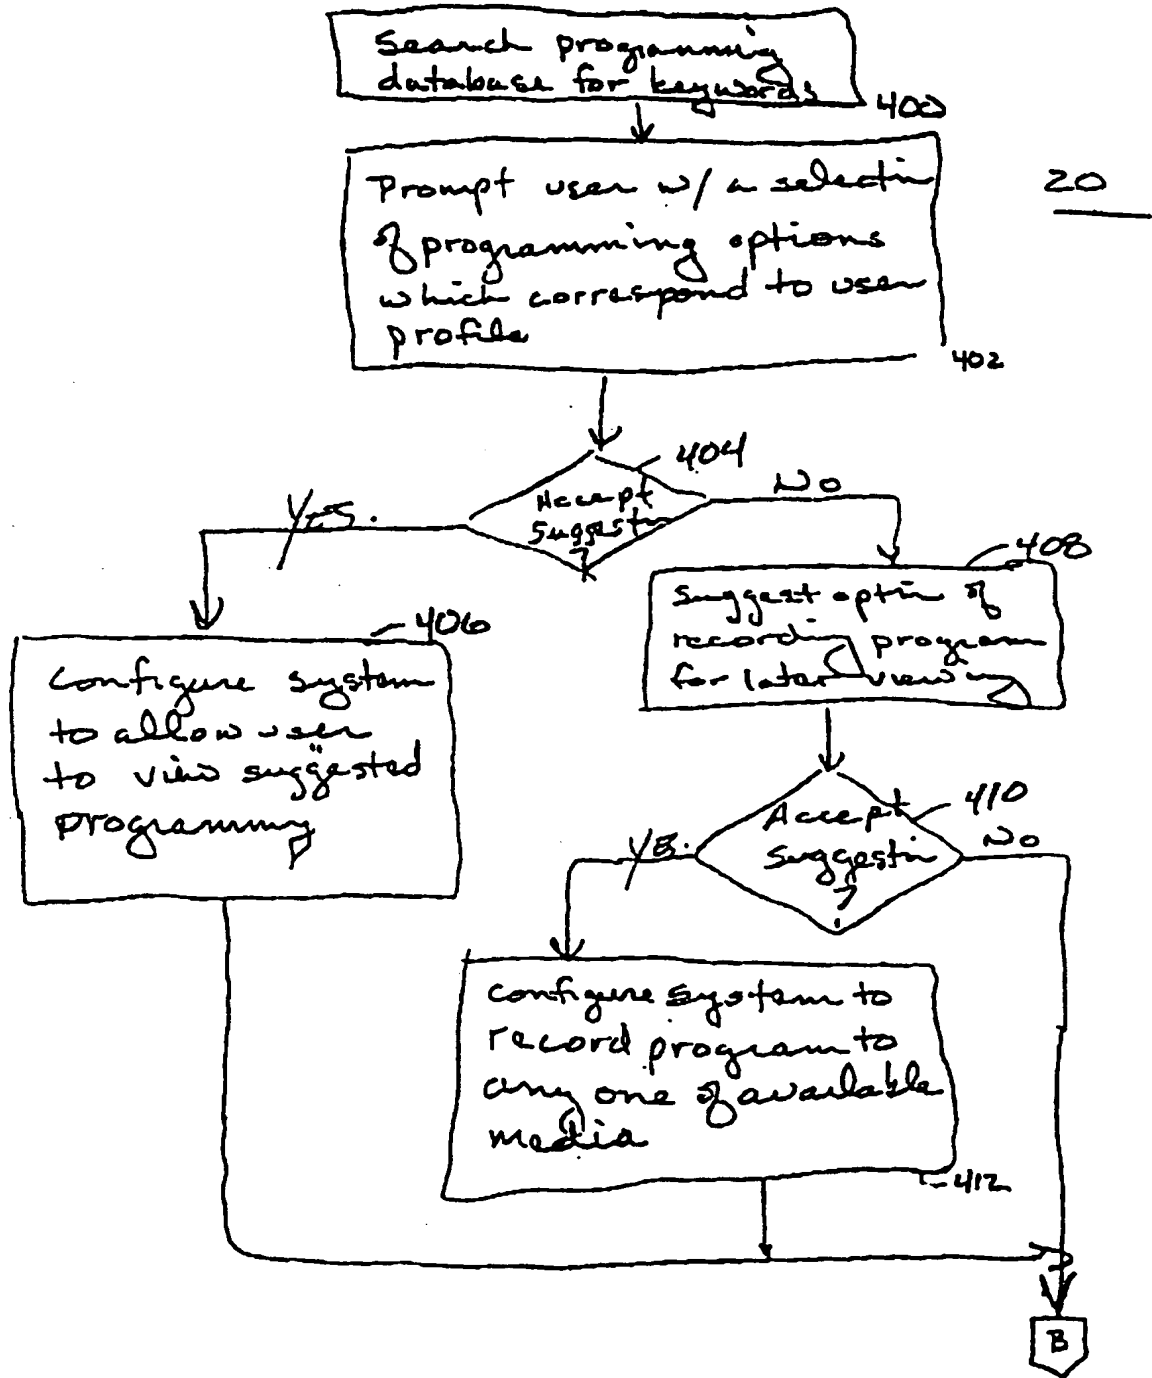 Search programming
database for keywords
400
Prompt user w/ a selectin
of programming options
which correspond to user
profile
402
20
404
Accept
Suggestin
?
Yes.
No
408
Suggest optin of
recording program
for later viewing
406
Configure system
to allow user
to view suggested
programming
410
Accept
suggestin
?
Yes.
No
configure system to
record program to
any one of available
media
412
B